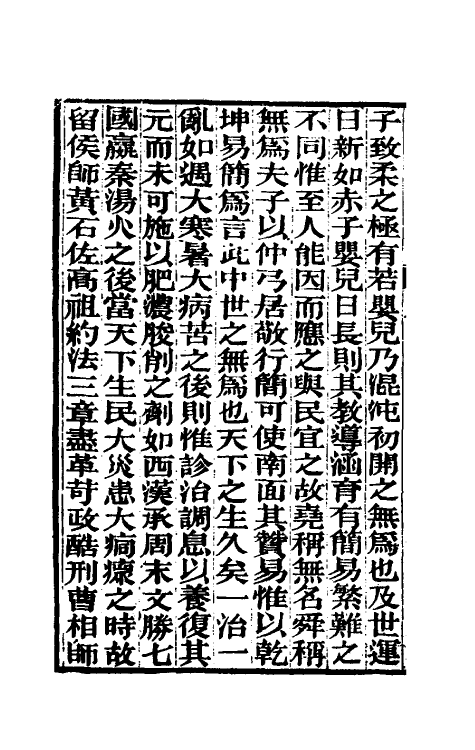 子致柔之極有若嬰兒乃混沌初開之無爲也及世運
日新如赤子嬰兒日長則其教導涵育有簡易繁難之
不同惟至人能因而應之與民宜之故堯稱無名舜稱
無爲夫子以仲弓居敬行簡可使南面其贊易惟以乾
坤易簡爲言此中世之無爲也天下之生久矣一治一
亂如遇大寒暑大病苦之後則惟診治調息以養復其
元而未可施以肥濃朘削之劑如西漢承周末文勝七
國嬴秦湯火之後當天下生民大災患大痌瘝之時故
留侯師黃石佐高祖約法三章盡革苛政酷刑曹相師